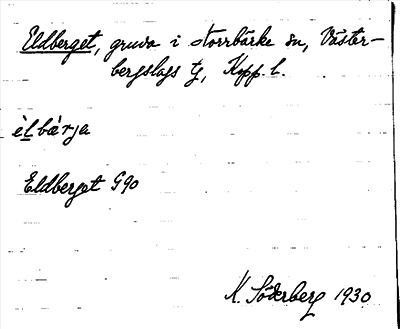 Eldberget, gruva i Norrbärke sn, Väster-
bergslags tg, Kopp. l.
èlbær̀ja
Eldberget G90
K. Söderberg 1930